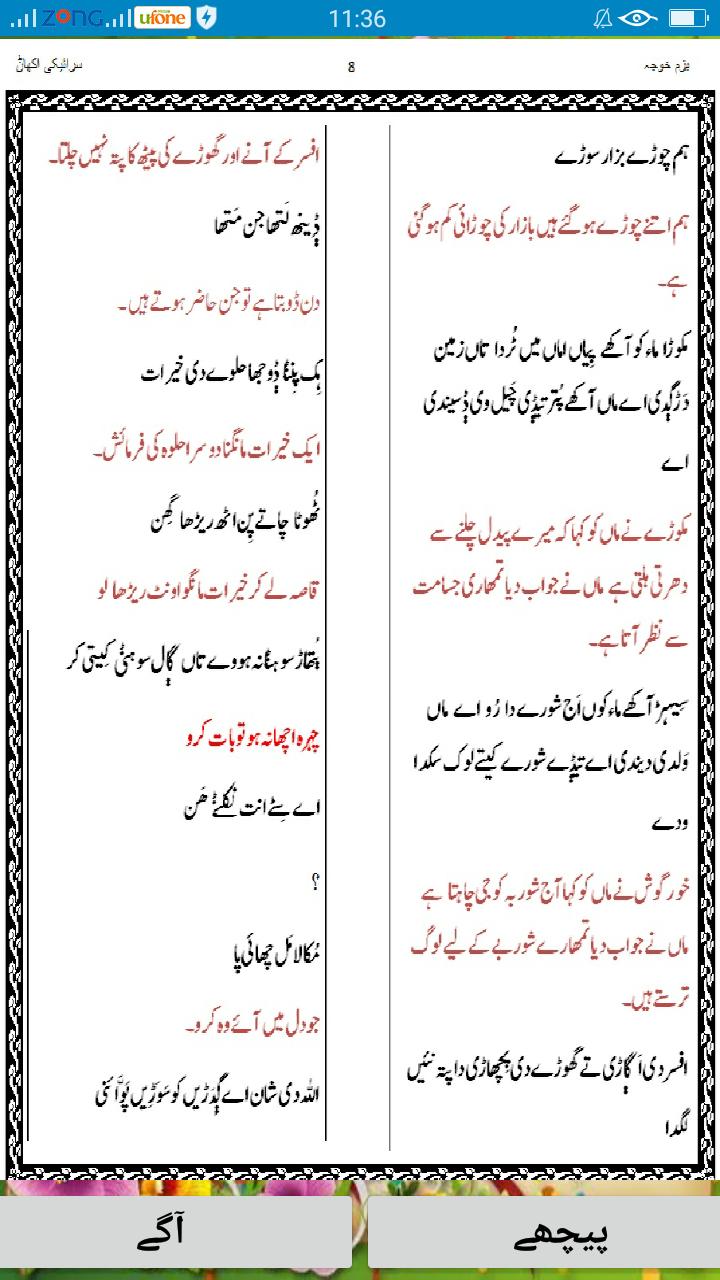 ZONG ufone 11:36
بزم خوجہ 8 سرائیکی اکھاݨ
ہم چوڑے بزار سوڑے
ہم اتنے چوڑے ہو گئے ہیں بازار کی چوڑائی کم ہو گئی
ہے۔
مکوڑا ماء کو آکھے پیاں اماں میں ٹُردا تاں زمین
دَڑڳدی اے ماں آکھے پُتر تیݙی چَیل وی ݙسیندی
اے
مکوڑے نے ماں کو کہا کہ میرے پیدل چلنے سے
دھرتی ہلتی ہے ماں نے جواب دیا تمھاری جسامت
سے نظر آتا ہے۔
سِیہڑ آکھے ماء کوں اَج شورے دا رُو اے ماں
وَلدی دیندی اے تیݙے شورے کیتے لوک سکدا
ودے
خورگوش نے ماں کو کہا آج شوربہ کو جی چاہتا ہے
ماں نے جواب دیا تمھارے شوربے کے لیے لوگ
ترستے ہیں۔
افسر دی اَڳاڑی تے گھوڑے دی پچھاڑی دا پتہ نئیں
لگدا
افسر کے آنے اور گھوڑے کی پیٹھ کا پتہ نہیں چلتا۔
ݙینھ لَتھا جن مَتھا
دن ڈوبتا ہے تو جن حاضر ہوتے ہیں۔
ہِک پِنݨا ݙوجھا حلوے دی خیرات
ایک خیرات مانگنا دوسرا حلوہ کی فرمائش۔
ٹُھوٹا چاتے پِن اٹھ ریڑھا گھِن
قاصہ لے کر خیرات مانگو اونٹ ریڑھا لو
ٻُتھاڑ سوہݨا نہ ہووے تاں ڳال سوہݨی کیتی کر
چہرہ اچھا نہ ہو تو بات کرو
اے سِٹے انت نکلݨے ھَن
؟
مُکالا مَل چھائی پا
جو دل میں آئے وہ کرو۔
اللہ دی شان اے ڳِدَڑیں کو سَوَڑِیں پَوَّائنی
آگے پیچھے